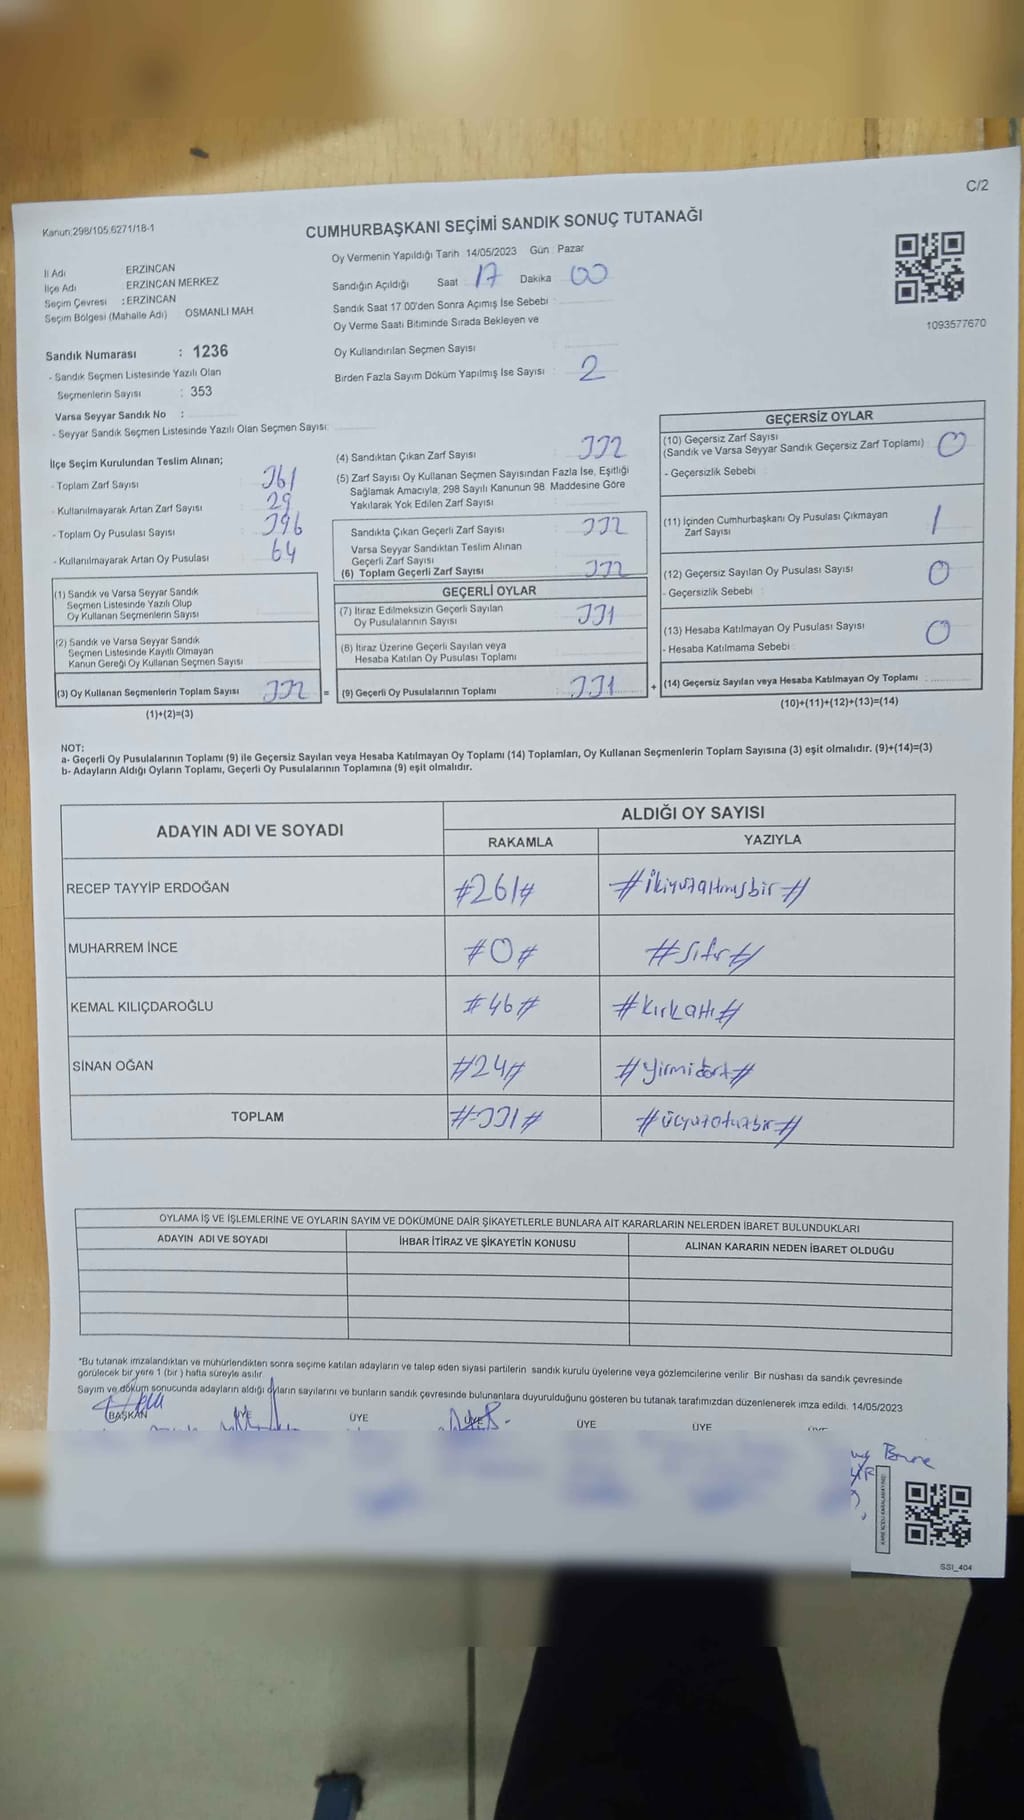 C/2
Kanun:298/105.6271/18-1
CUMHURBAŞKANI SEÇİMİ SANDIK SONUÇ TUTANAĞI
İl Adı : ERZİNCAN
İlçe Adı : ERZİNCAN MERKEZ
Seçim Çevresi : ERZİNCAN
Seçim Bölgesi (Mahalle Adı) OSMANLI MAH
Sandık Numarası : 1236
- Sandık Seçmen Listesinde Yazılı Olan
Seçmenlerin Sayısı : 353
Varsa Seyyar Sandık No :
- Seyyar Sandık Seçmen Listesinde Yazılı Olan Seçmen Sayısı:
Oy Vermenin Yapıldığı Tarih 14/05/2023 Gün : Pazar
Sandığın Açıldığı Saat 17 Dakika 00
Sandık Saat 17 00'den Sonra Açımış İse Sebebi :
Oy Verme Saati Bitiminde Sırada Bekleyen ve
Oy Kullandırılan Seçmen Sayısı
Birden Fazla Sayım Döküm Yapılmış İse Sayısı : 2
1093577670
İlçe Seçim Kurulundan Teslim Alınan;
- Toplam Zarf Sayısı : 361
- Kullanılmayarak Artan Zarf Sayısı : 29
- Toplam Oy Pusulası Sayısı : 396
- Kullanılmayarak Artan Oy Pusulası : 64
(1) Sandık ve Varsa Seyyar Sandık
Seçmen Listesinde Yazılı Olup
Oy Kullanan Seçmenlerin Sayısı
(2) Sandık ve Varsa Seyyar Sandık
Seçmen Listesinde Kayıtlı Olmayan
Kanun Gereği Oy Kullanan Seçmen Sayısı
(3) Oy Kullanan Seçmenlerin Toplam Sayısı 332 =
(1)+(2)=(3)
(4) Sandıktan Çıkan Zarf Sayısı : 332
(5) Zarf Sayısı Oy Kullanan Seçmen Sayısından Fazla İse, Eşitliği
Sağlamak Amacıyla, 298 Sayılı Kanunun 98. Maddesine Göre
Yakılarak Yok Edilen Zarf Sayısı
Sandıkta Çıkan Geçerli Zarf Sayısı : 332
Varsa Seyyar Sandıktan Teslim Alınan
Geçerli Zarf Sayısı
(6) Toplam Geçerli Zarf Sayısı : 332
GEÇERLİ OYLAR
(7) İtiraz Edilmeksizin Geçerli Sayılan
Oy Pusulalarının Sayısı : 331
(8) İtiraz Üzerine Geçerli Sayılan veya
Hesaba Katılan Oy Pusulası Toplamı
(9) Geçerli Oy Pusulalarının Toplamı : 331 +
GEÇERSİZ OYLAR
(10) Geçersiz Zarf Sayısı
(Sandık ve Varsa Seyyar Sandık Geçersiz Zarf Toplamı) : 0
- Geçersizlik Sebebi :
(11) İçinden Cumhurbaşkanı Oy Pusulası Çıkmayan
Zarf Sayısı : 1
(12) Geçersiz Sayılan Oy Pusulası Sayısı : 0
- Geçersizlik Sebebi :
(13) Hesaba Katılmayan Oy Pusulası Sayısı : 0
- Hesaba Katılmama Sebebi :
(14) Geçersiz Sayılan veya Hesaba Katılmayan Oy Toplamı :
(10)+(11)+(12)+(13)=(14)
NOT:
a- Geçerli Oy Pusulalarının Toplamı (9) ile Geçersiz Sayılan veya Hesaba Katılmayan Oy Toplamı (14) Toplamları, Oy Kullanan Seçmenlerin Toplam Sayısına (3) eşit olmalıdır. (9)+(14)=(3)
b- Adayların Aldığı Oyların Toplamı, Geçerli Oy Pusulalarının Toplamına (9) eşit olmalıdır.
ADAYIN ADI VE SOYADI ALDIĞI OY SAYISI
RAKAMLA YAZIYLA
RECEP TAYYİP ERDOĞAN #261# #ikiyüzaltmışbir#
MUHARREM İNCE #0# #sıfır#
KEMAL KILIÇDAROĞLU #46# #kırkaltı#
SİNAN OĞAN #24# #yirmidört#
TOPLAM #331# #üçyüzotuzbir#
OYLAMA İŞ VE İŞLEMLERİNE VE OYLARIN SAYIM VE DÖKÜMÜNE DAİR ŞİKAYETLERLE BUNLARA AİT KARARLARIN NELERDEN İBARET BULUNDUKLARI
ADAYIN ADI VE SOYADI İHBAR İTİRAZ VE ŞİKAYETİN KONUSU ALINAN KARARIN NEDEN İBARET OLDUĞU
*Bu tutanak imzalandıktan ve mühürlendikten sonra seçime katılan adayların ve talep eden siyasi partilerin sandık kurulu üyelerine veya gözlemcilerine verilir. Bir nüshası da sandık çevresinde
görülecek bir yere 1 (bir ) hafta süreyle asılır.
Sayım ve döküm sonucunda adayların aldığı oyların sayılarını ve bunların sandık çevresinde bulunanlara duyurulduğunu gösteren bu tutanak tarafımızdan düzenlenerek imza edildi. 14/05/2023
BAŞKAN ÜYE ÜYE ÜYE ÜYE ÜYE ÜYE
SSI_404